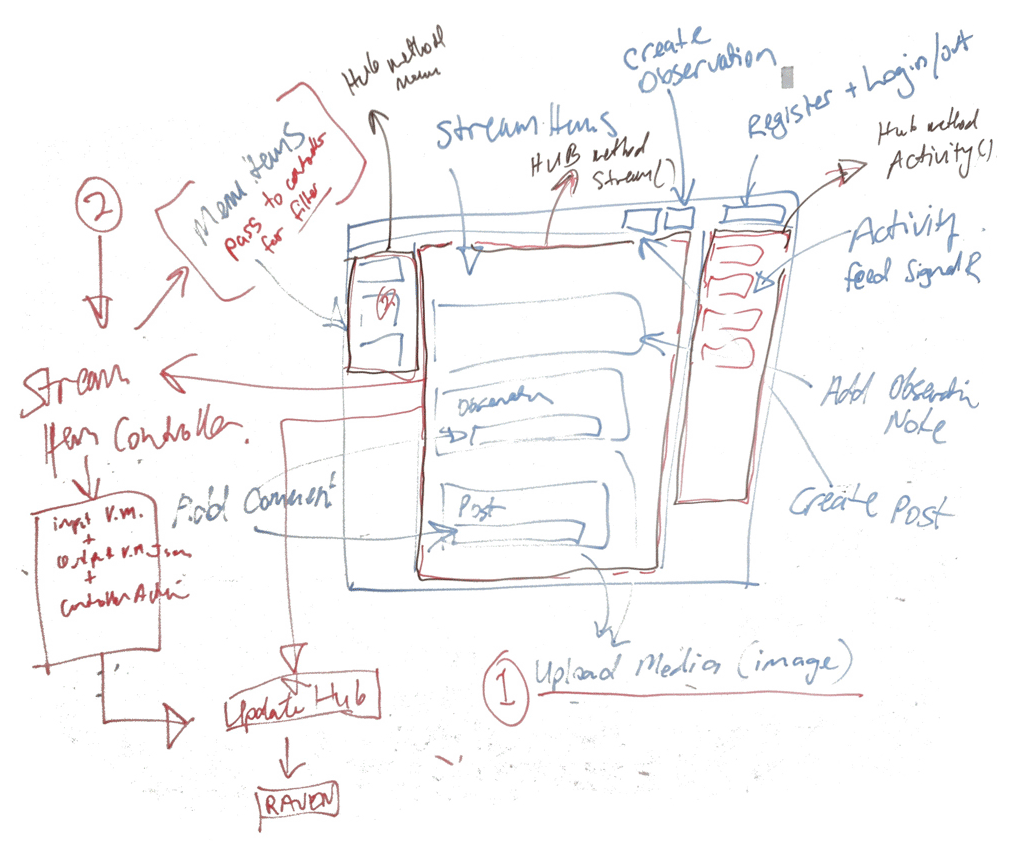 Hub method
menu
Create
Observation
Register + Login/out
Stream Items
HUB method
Stream()
Hub method
Activity()
Menu items
pass to controller
for filter
2
2
Activity
feed SignalR
Stream
Item Controller.
Observation
Add Observation
Note
Add Comment
Post
Create Post
input V.M.
+
output V.M.
+
Controller Action
1
Upload Media (image)
Update Hub
RAVEN